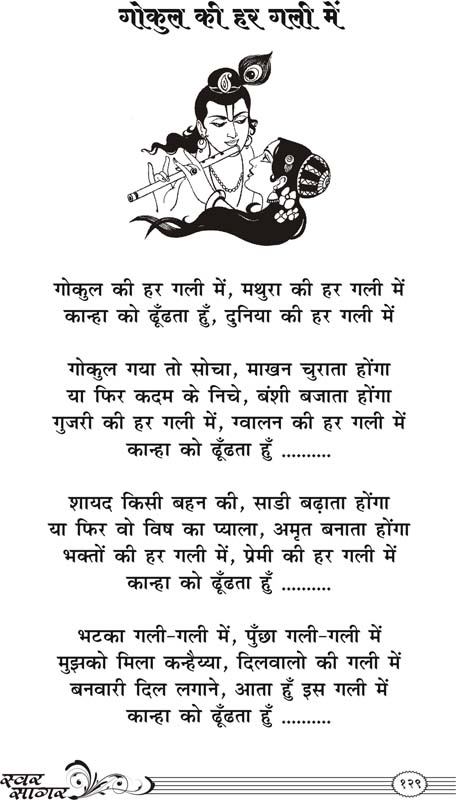 गोकुल की हर गली में
गोकुल की हर गली में, मथुरा की हर गली में
कान्हा को ढूँढता हुँ, दुनिया की हर गली में
गोकुल गया तो सोचा, माखन चुराता होंगा
या फिर कदम के निचे, बंशी बजाता होंगा
गुजरी की हर गली में, ग्वालन की हर गली में
कान्हा को ढूँढता हुँ ..........
शायद किसी बहन की, साडी बढ़ाता होंगा
या फिर वो विष का प्याला, अमृत बनाता होंगा
भक्तों की हर गली में, प्रेमी की हर गली में
कान्हा को ढूँढता हुँ ..........
भटका गली-गली में, पुँछा गली-गली में
मुझको मिला कन्हैय्या, दिलवालो की गली में
बनवारी दिल लगाने, आता हुँ इस गली में
कान्हा को ढूँढता हुँ ..........
स्वर
सागर
१२९